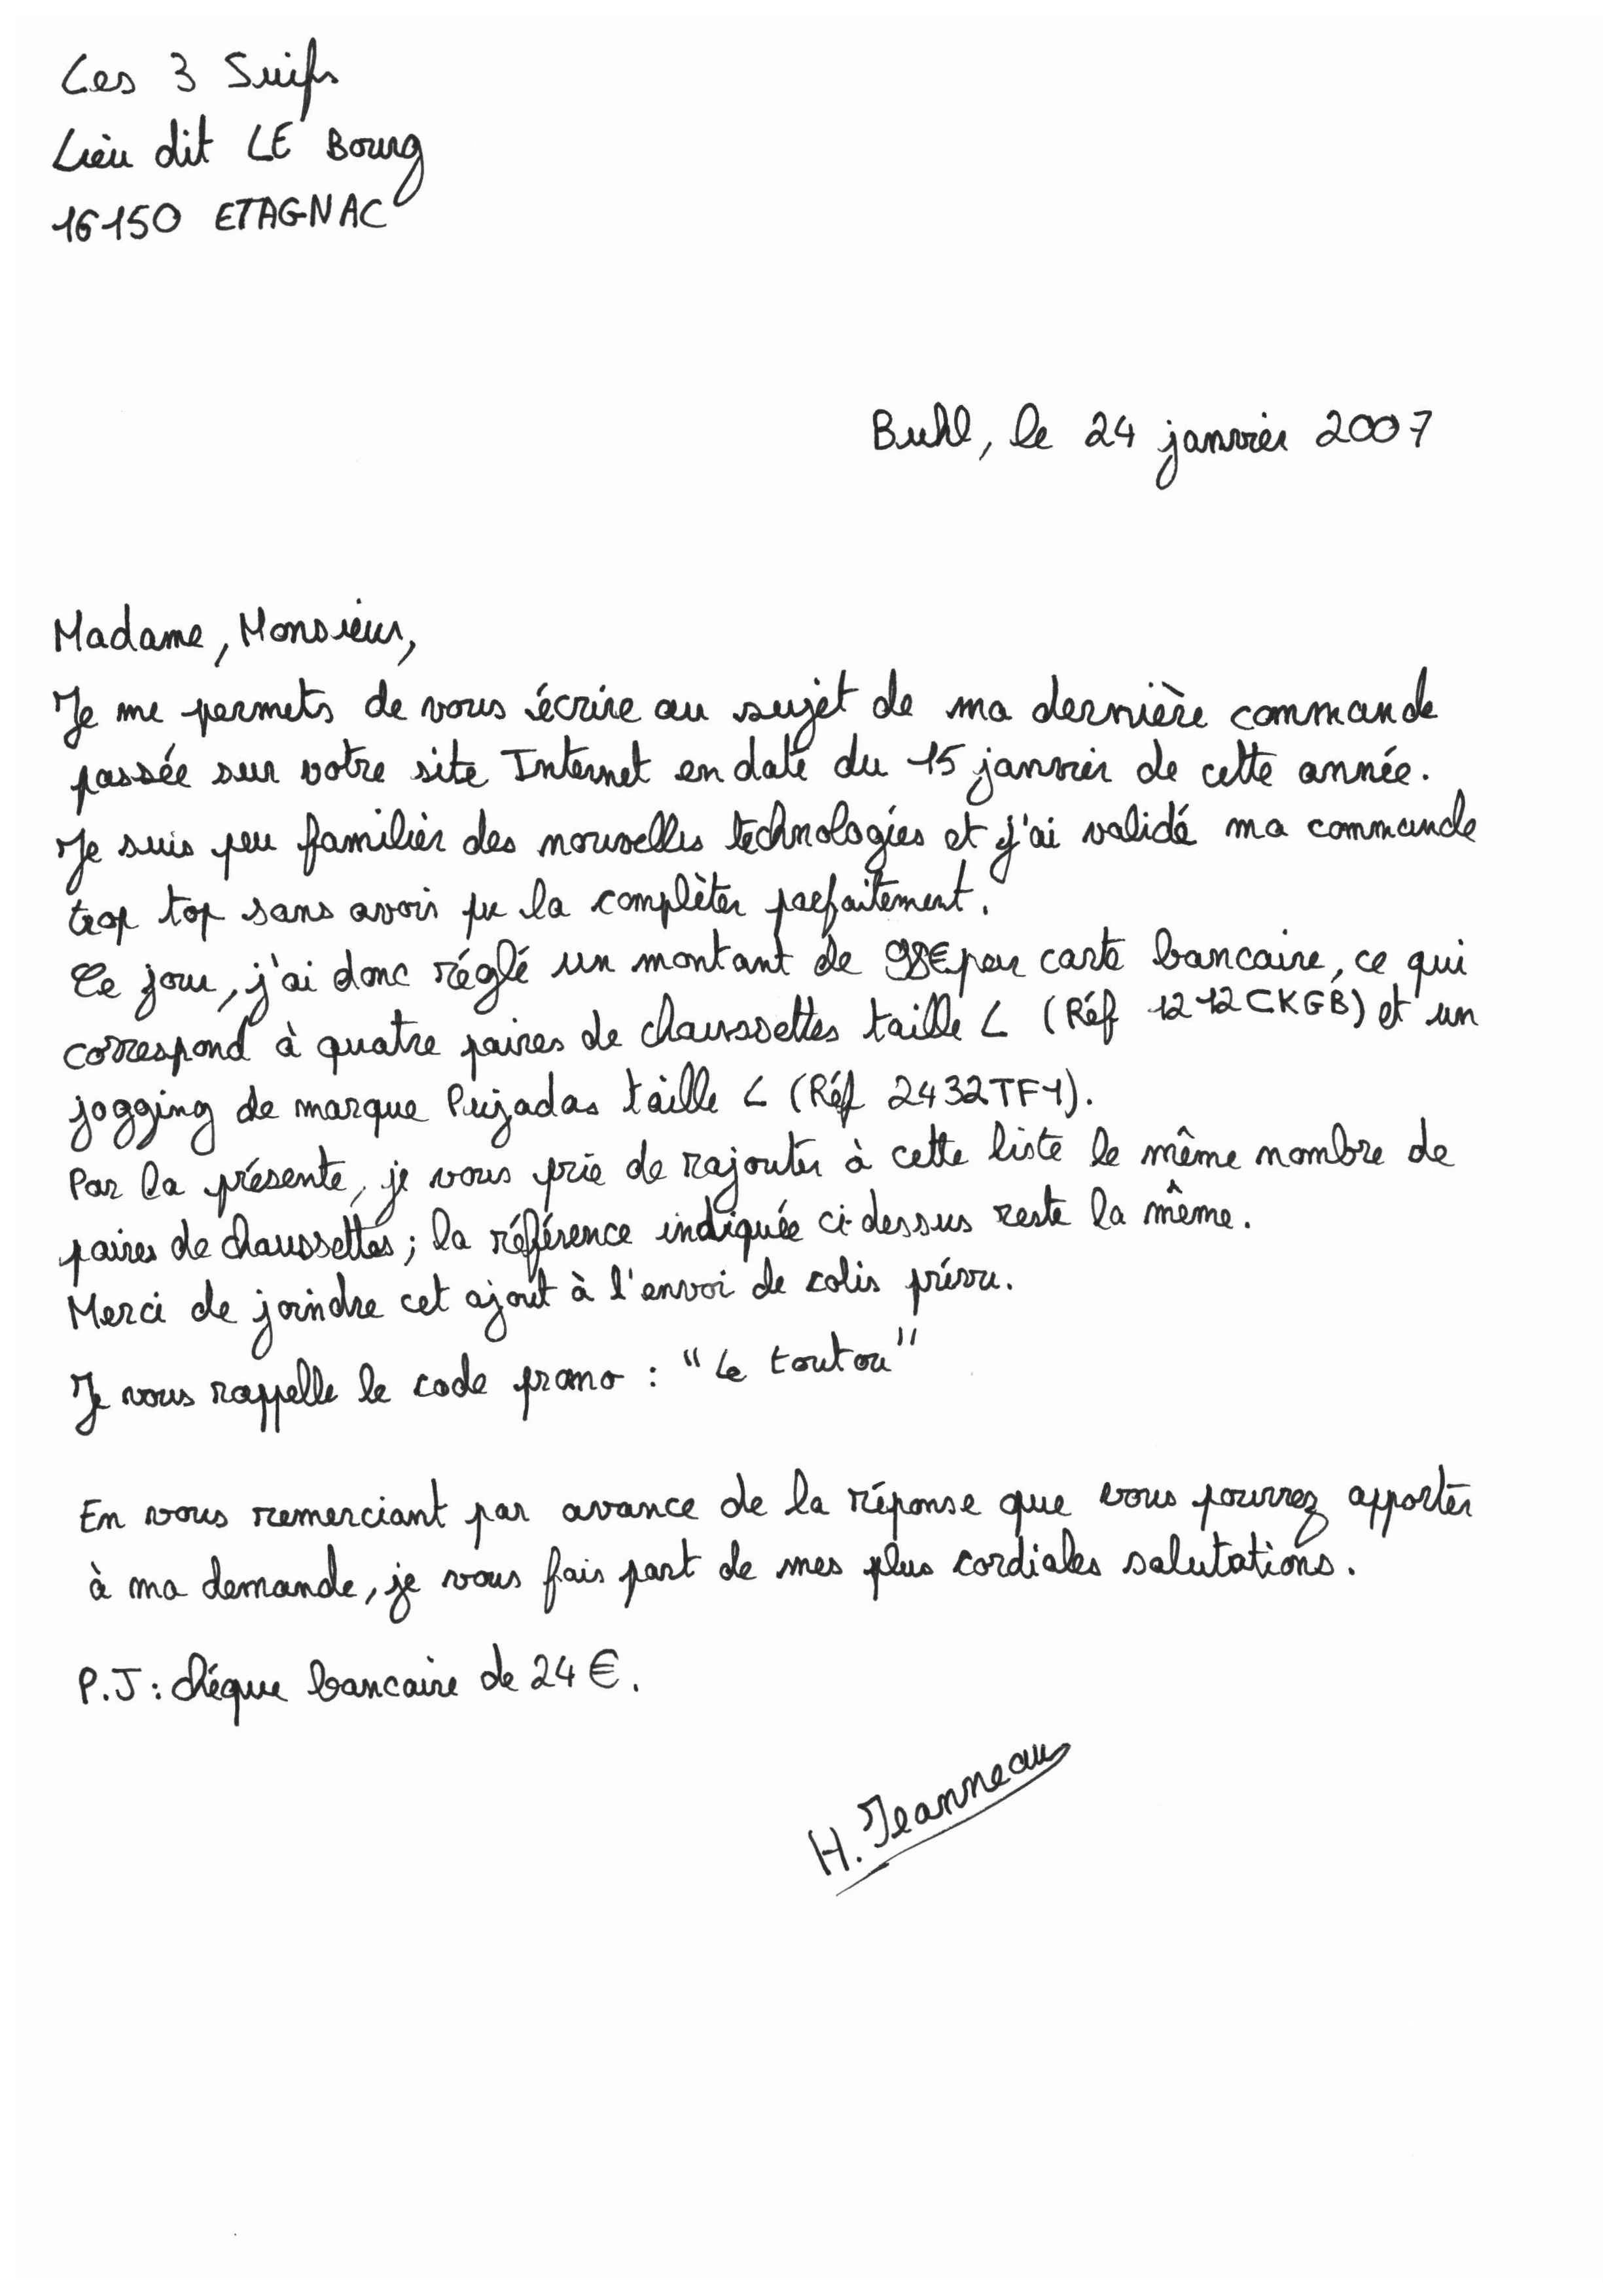 Les 3 Suifs
Lieu dit LE Bourg
16150 ETAGNAC
Buhl, le 24 janvier 2007
Madame, Monsieur,
Je me permets de vous écrire au sujet de ma dernière commande
passée sur votre site Internet en date du 15 janvier de cette année.
Je suis peu familier des nouvelles technologies et j'ai validé ma commande
trop top sans avoir pu la complèter parfaitement.
Ce jour, j'ai donc réglé un montant de 98€ par carte bancaire, ce qui
correspond à quatre paires de chaussettes taille L (Réf 1212CKGB) et un
jogging de marque Pujadas taille L (Réf 2432TF1).
Par la présente, je vous prie de rajouter à cette liste le même nombre de
paires de chaussettes ; la référence indiquée ci-dessus reste la même.
Merci de joindre cet ajout à l'envoi de colis prévu.
Je vous rappelle le code promo : "Le toutou"
En vous remerciant par avance de la réponse que vous pourrez apporter
à ma demande, je vous fais part de mes plus cordiales salutations.
P.J : chéque bancaire de 24 €.
H. Jeanneau